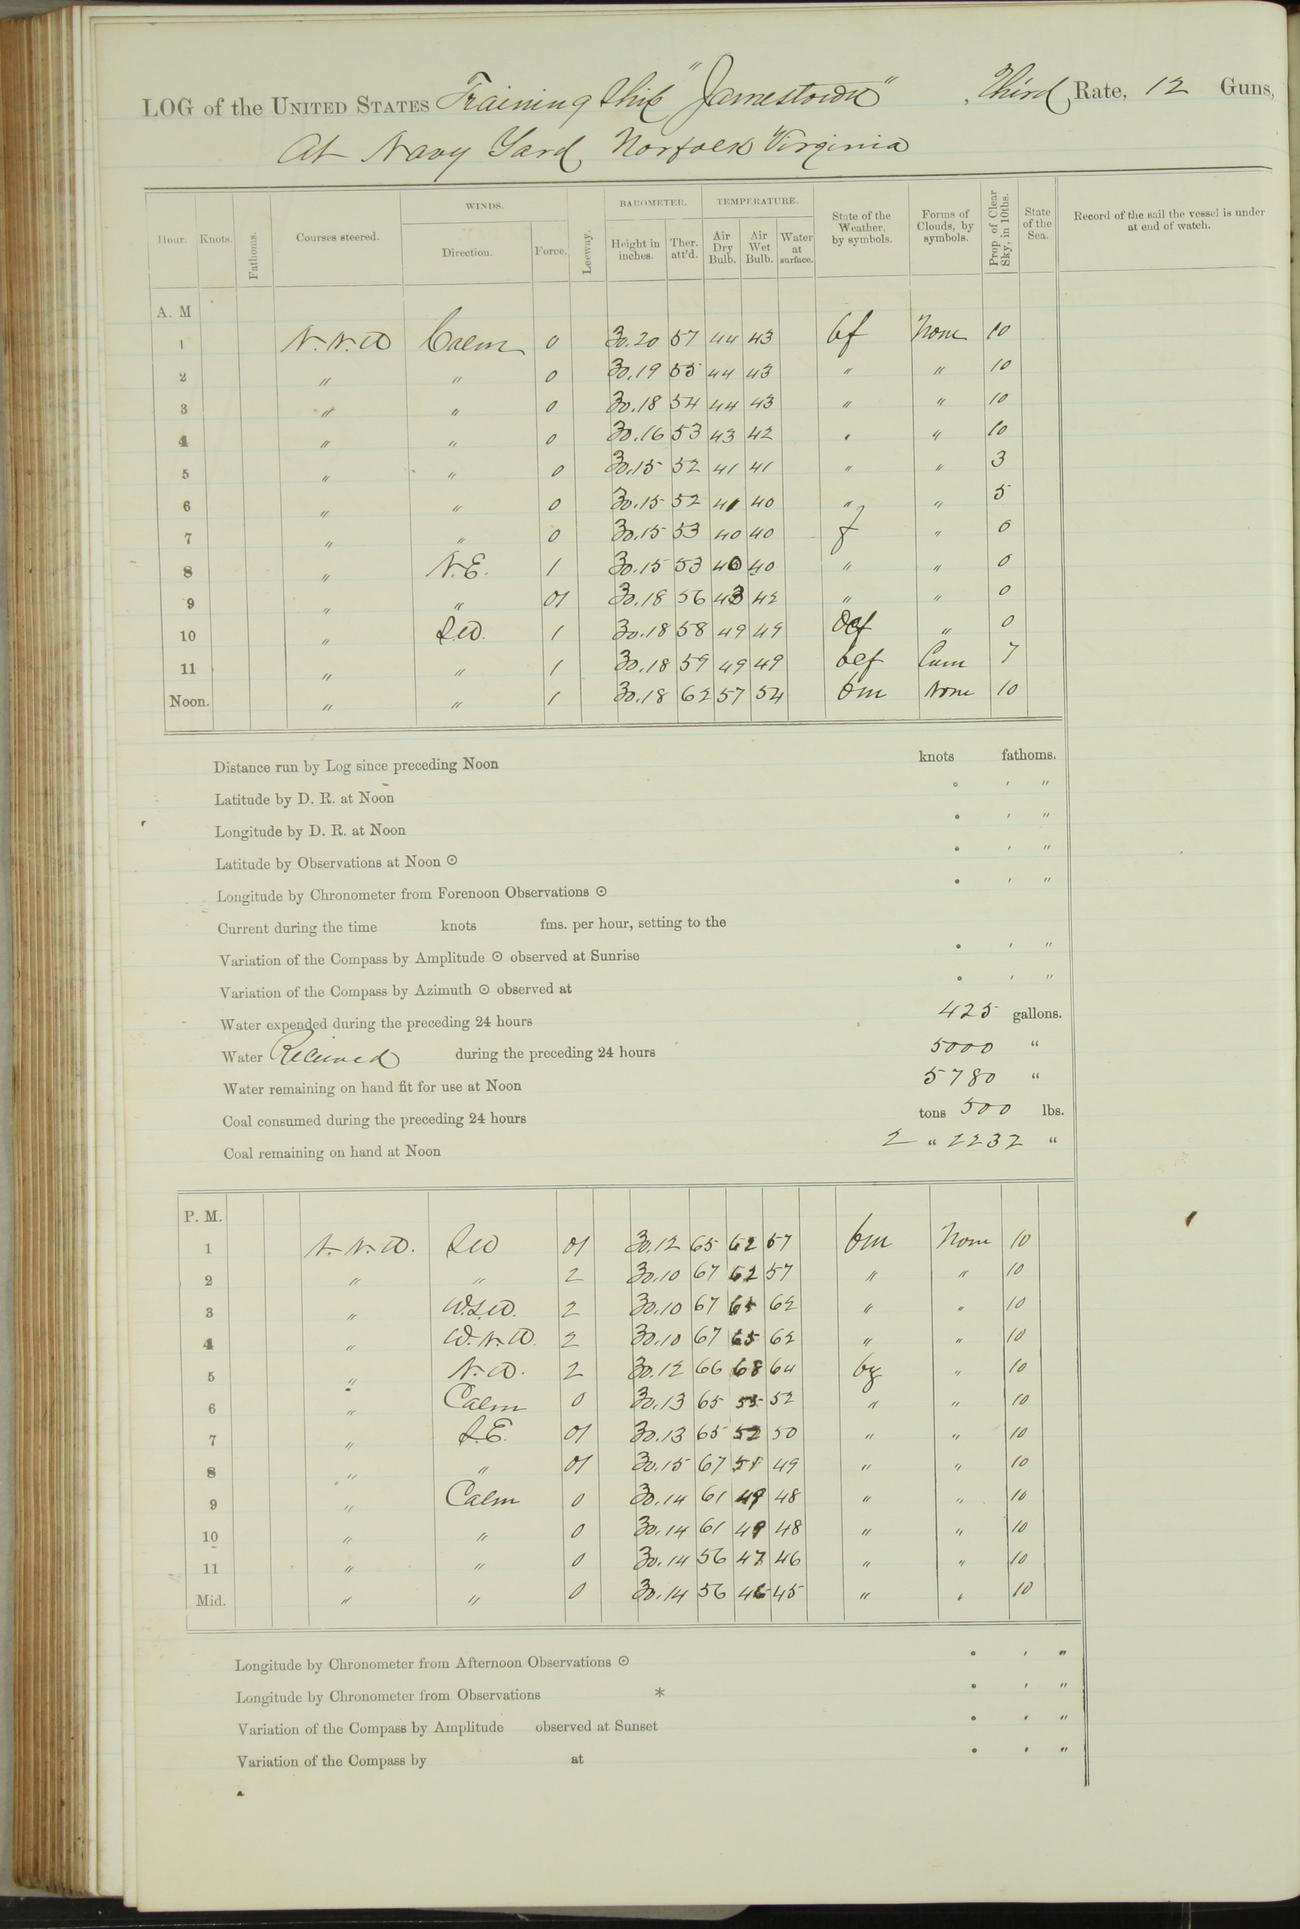 LOG of the UNITED STATES Training Ship "Jamestown", Third Rate, 12 Guns,
At Navy Yard Norfolk Virginia
Hour. Knots. Fathoms. Courses steered. WINDS. Direction. Force. Leeway. BAROMETER. Height in inches. Ther. att'd. TEMPERATURE. Air Dry Bulb. Air Wet Bulb. Water at surface. State of the Weather, by symbols. Forms of Clouds, by symbols. Prop. of Clear Sky, in 10ths. State of the Sea. Record of the sail the vessel is under at end of watch.
A. M
1 N.N.W Calm 0 30.20 57 44 43 bf None 10
2 " " 0 30.19 55 44 43 " " 10
3 " " 0 30.18 54 44 43 " " 10
4 " " 0 30.16 53 43 42 " " 10
5 " " 0 30.15 52 41 41 " " 3
6 " " 0 30.15 52 41 40 " " 5
7 " " 0 30.15 53 40 40 f " 0
8 " N.E. 1 30.15 53 40 40 " " 0
9 " " 01 30.18 56 43 42 " " 0
10 " S.W. 1 30.18 58 49 49 " 0
11 " " 1 30.18 59 49 49 bcf Cum 7
Noon. " " 1 30.18 62 57 54 bm None 10
Distance run by Log since preceding Noon knots fathoms.
Latitude by D. R. at Noon ° ′ ″
Longitude by D. R. at Noon ° ′ ″
Latitude by Observations at Noon ☉ ° ′ ″
Longitude by Chronometer from Forenoon Observations ☉ ° ′ ″
Current during the time knots fms. per hour, setting to the
Variation of the Compass by Amplitude ☉ observed at Sunrise ° ′ ″
Variation of the Compass by Azimuth ☉ observed at ° ′ ″
Water expended during the preceding 24 hours 425 gallons.
Water Received during the preceding 24 hours 5000 "
Water remaining on hand fit for use at Noon 5780 "
Coal consumed during the preceding 24 hours tons 500 lbs.
Coal remaining on hand at Noon 2 " 2232 "
P. M.
1 N.N.W. SW 01 30.12 65 62 57 bm None 10
2 " " 2 30.10 67 62 57 " " 10
3 " W.S.W. 2 30.10 67 65 62 " " 10
4 " W.N.W. 2 30.10 67 65 62 " " 10
5 " N.W. 2 30.12 66 68 64 " 10
6 " Calm 0 30.13 65 55 52 " " 10
7 " S.E. 01 30.13 65 52 50 " " 10
8 " " 01 30.15 67 51 49 " " 10
9 " Calm 0 30.14 61 49 48 " " 10
10 " " 0 30.14 61 49 48 " " 10
11 " " 0 30.14 56 47 46 " " 10
Mid. " " 0 30.14 56 46 45 " " 10
Longitude by Chronometer from Afternoon Observations ☉ ° ′ ″
Longitude by Chronometer from Observations * ° ′ ″
Variation of the Compass by Amplitude observed at Sunset ° ′ ″
Variation of the Compass by at ° ′ ″